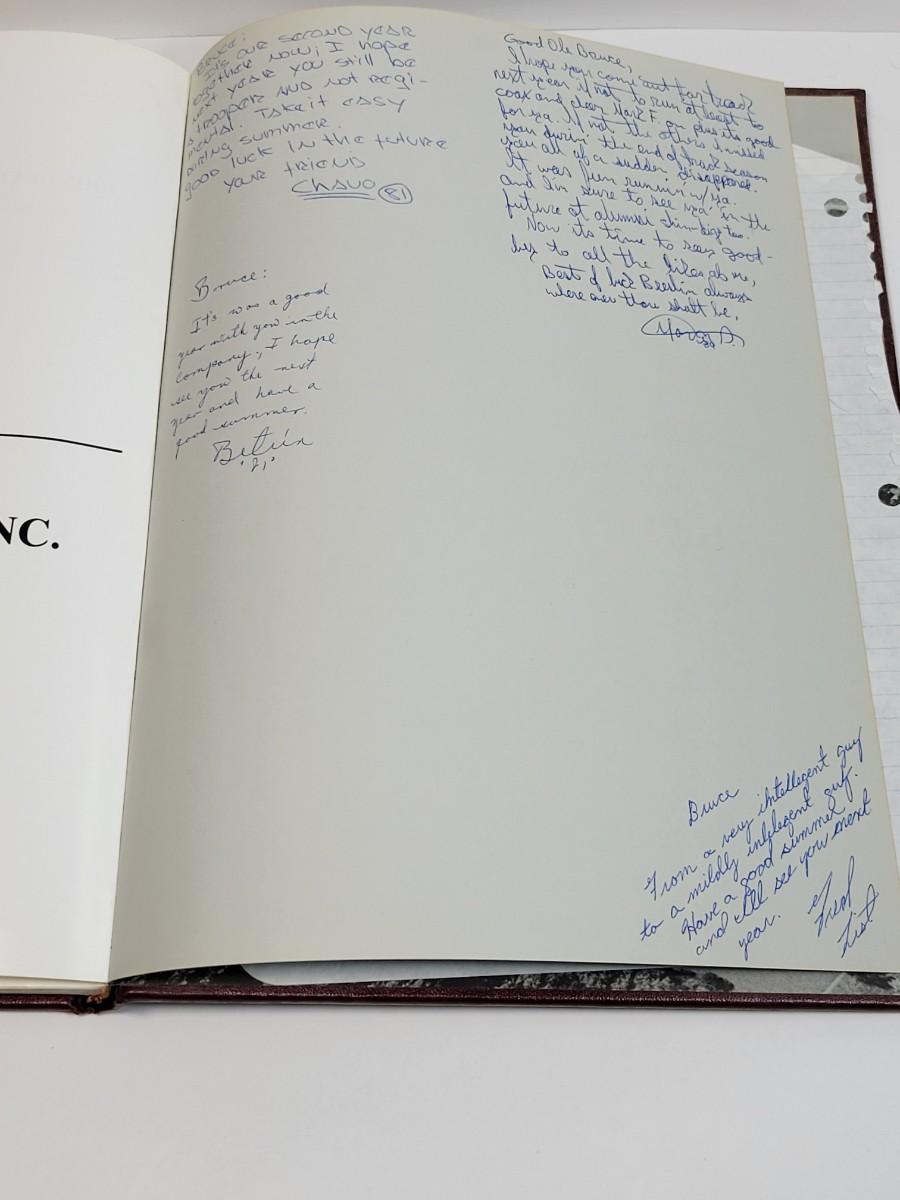 Bruce:
It's our second year
together now; I hope
next year you still be
a trooper and not regi-
mental. Take it easy
during summer.
good luck in the future
your friend
Chavo 81
Good Ole Bruce,
I hope you come out for track
next year if not to run at least to
coax and clear Mark F. on plus its good
for ya. If not the others I missed
you durin' the end of track season
you all of a sudden disappeared.
It was fun runnin w/ ya.
and I'm sure to see ya in the
future at alumni too.
Now its time to say good-
bye to all the likes of me,
Best of luck always
where ever thou shalt be,
Bruce:
It's was a good
year with you in the
company, I hope
see you the next
year and have a
good summer.
'81'
NC.
Bruce
From a very intellegent guy
to a mildly intelegent guy.
Have a good summer
and I'll see you next
year.